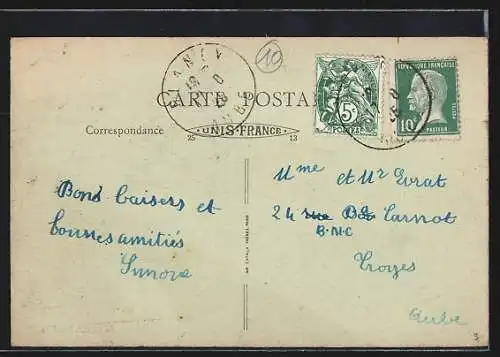 10
CARTE POSTALE
AUBE
5c
POSTES
REPUBLIQUE FRANÇAISE
10c
POSTES
PASTEUR
Correspondance
25 UNIS-FRANCE 13
Bons baisers et
bonnes amitiés
Simone
Mme et Mr Evrat
24 rue Bd Carnot
B.N.C
Troyes
Aube